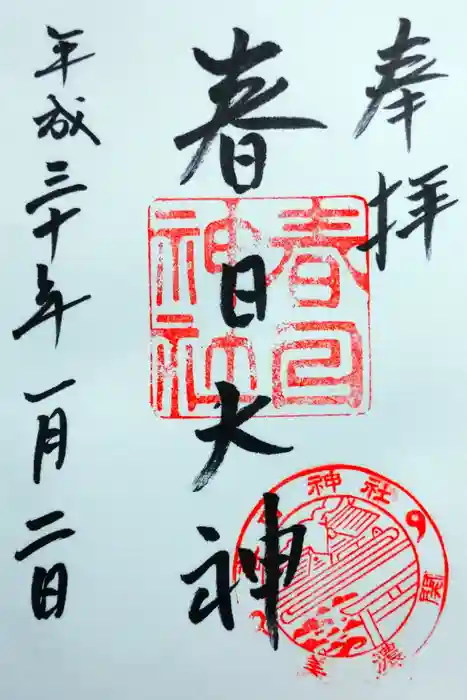 奉拝
春日大神
年成三十年一月二日
春日
神社
神社
関
美濃